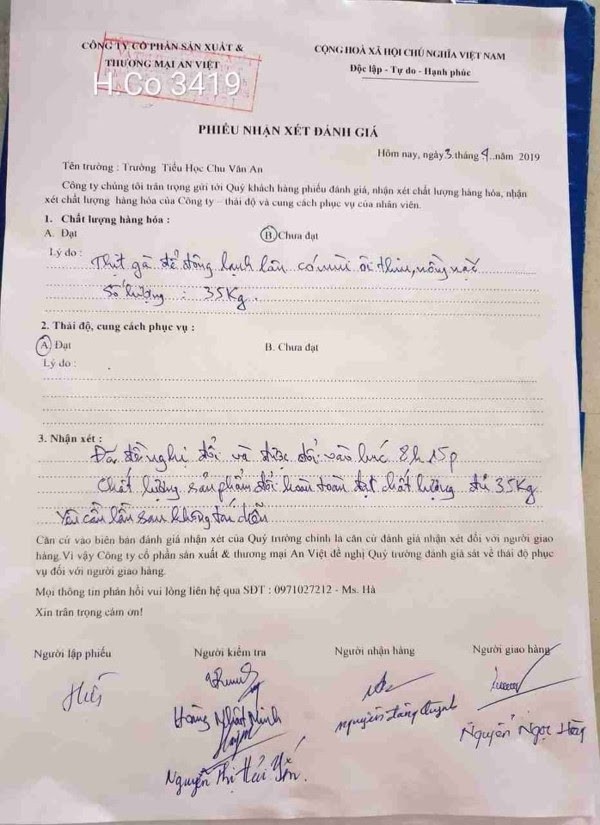 CÔNG TY CỔ PHẦN SẢN XUẤT &
THƯƠNG MẠI AN VIỆT
H.Co 3419
CỘNG HOÀ XÃ HỘI CHỦ NGHĨA VIỆT NAM
Độc lập - Tự do - Hạnh phúc
PHIẾU NHẬN XÉT ĐÁNH GIÁ
Hôm nay, ngày 3 tháng 9 năm 2019
Tên trường : Trường Tiểu Học Chu Văn An
Công ty chúng tôi trân trọng gửi tới Quý khách hàng phiếu đánh giá, nhận xét chất lượng hàng hóa, nhận
xét chất lượng hàng hóa của Công ty – thái độ và cung cách phục vụ của nhân viên.
1. Chất lượng hàng hóa :
A. Đạt B. Chưa đạt
Lý do : Thịt gà để đông lạnh lâu có mùi ôi thiu, nồng nặc
Số lượng : 35Kg.
2. Thái độ, cung cách phục vụ :
A. Đạt B. Chưa đạt
Lý do :
3. Nhận xét :
Đã đề nghị đổi và được đổi vào lúc 8h 15p
Chất lượng sản phẩm đổi hoàn toàn đạt chất lượng đủ 35Kg
Yêu cầu lần sau không tái diễn
Căn cứ vào biên bản đánh giá nhận xét của Quý trường chính là căn cứ đánh giá nhận xét đối với người giao
hàng.Vì vậy Công ty cổ phần sản xuất & thương mại An Việt đề nghị Quý trường đánh giá sát về thái độ phục
vụ đối với người giao hàng.
Mọi thông tin phản hồi vui lòng liên hệ qua SĐT : 0971027212 - Ms. Hà
Xin trân trọng cám ơn!
Người lập phiếu Người kiểm tra Người nhận hàng Người giao hàng
Hoàng Nhật Minh
Nguyễn Thị Hải Yến.
Nguyễn Quỳnh
Nguyễn Ngọc